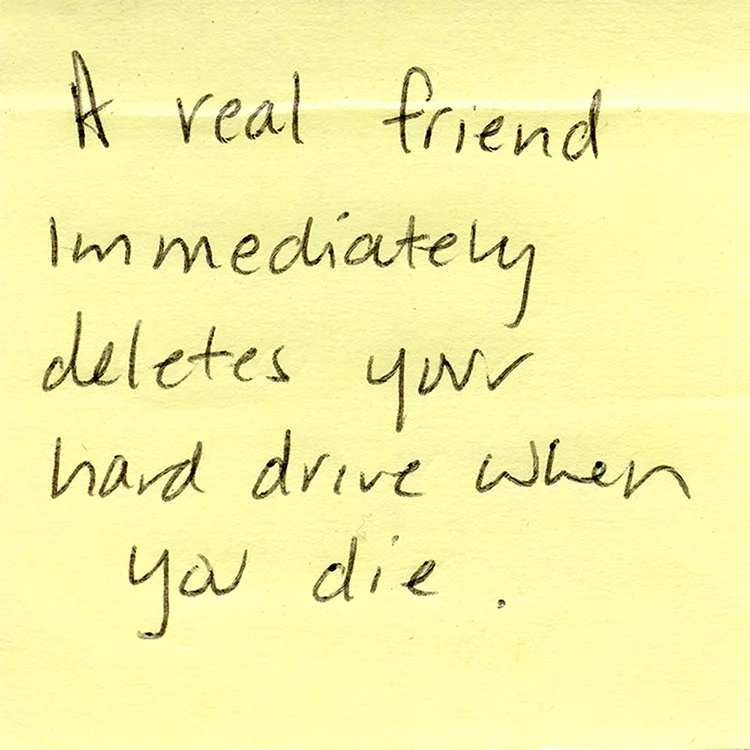 A real friend
immediately
deletes your
hard drive when
you die.